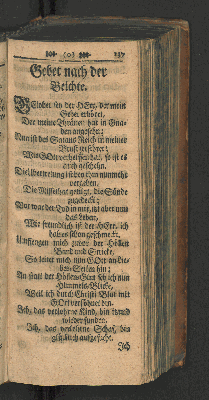 (o) 137
Gebet nach der
Beichte.
Gelobet sey der HErr, der mein
Gebet erhöret,
Der meine Thränen hat in Gna-
den angesehn;
Nun ist des Satans Reich in meiner
Brust zerstöret,
Was GOtt verheissen hat, so ist es
auch geschehn.
Die Ubertretung ist von ihm nunmehr
vergeben,
Die Missethat getilgt, die Sünde
zugedeckt;
Vor war der Tod in mir, itzt aber nun
das Leben,
Wie freundlich ist der HErr, ich
habe es schon geschmeckt.
Umfiengen mich zuvor der Höllen
Band und Stricke,
So leitet mich nun GOtt an Lie-
bes-Seilen hin;
An statt der Höllen-Glut seh ich nun
Himmels-Blicke,
Weil ich durch Christi Blut mit
GOtt versöhnet bin.
Ich, das verlohrne Kind, bin itzund
wieder funden,
Ich, das verlohrne Schaf, bin
glücklich aufgesucht.
Ich